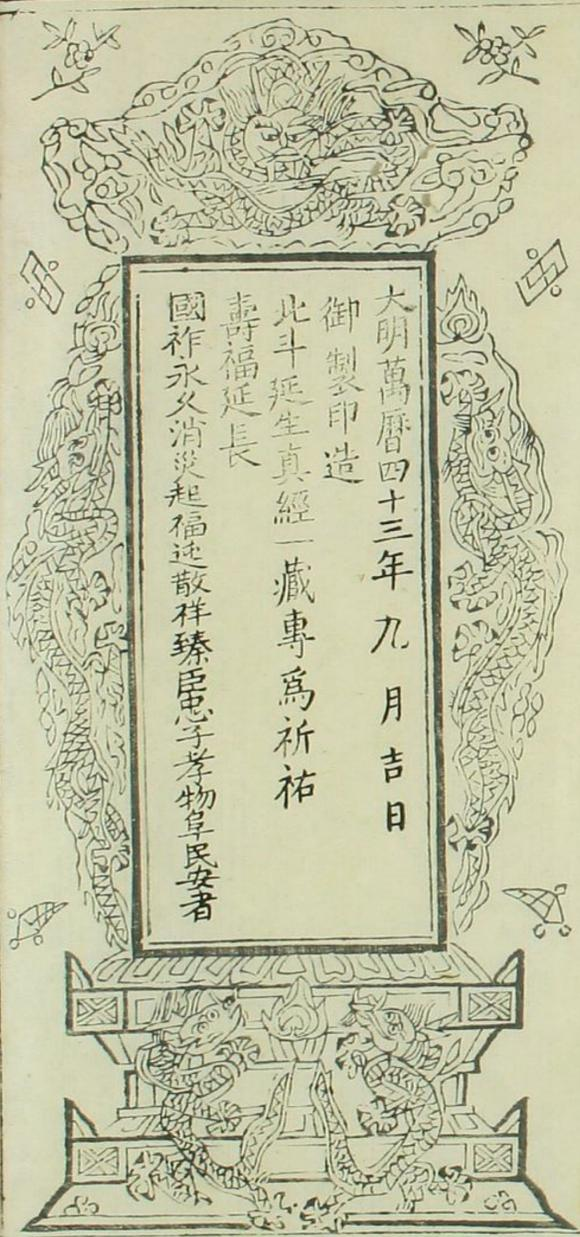 大明萬曆四十三年九月吉日
御製印造
北斗延生真經一藏專爲祈祐
壽福延長
國祚永久消災起福迍散祥臻臣忠子孝物阜民安者